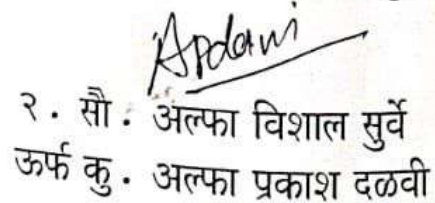 २. सौ. अल्फा विशाल सुर्वे
ऊर्फ कु. अल्फा प्रकाश दळवी